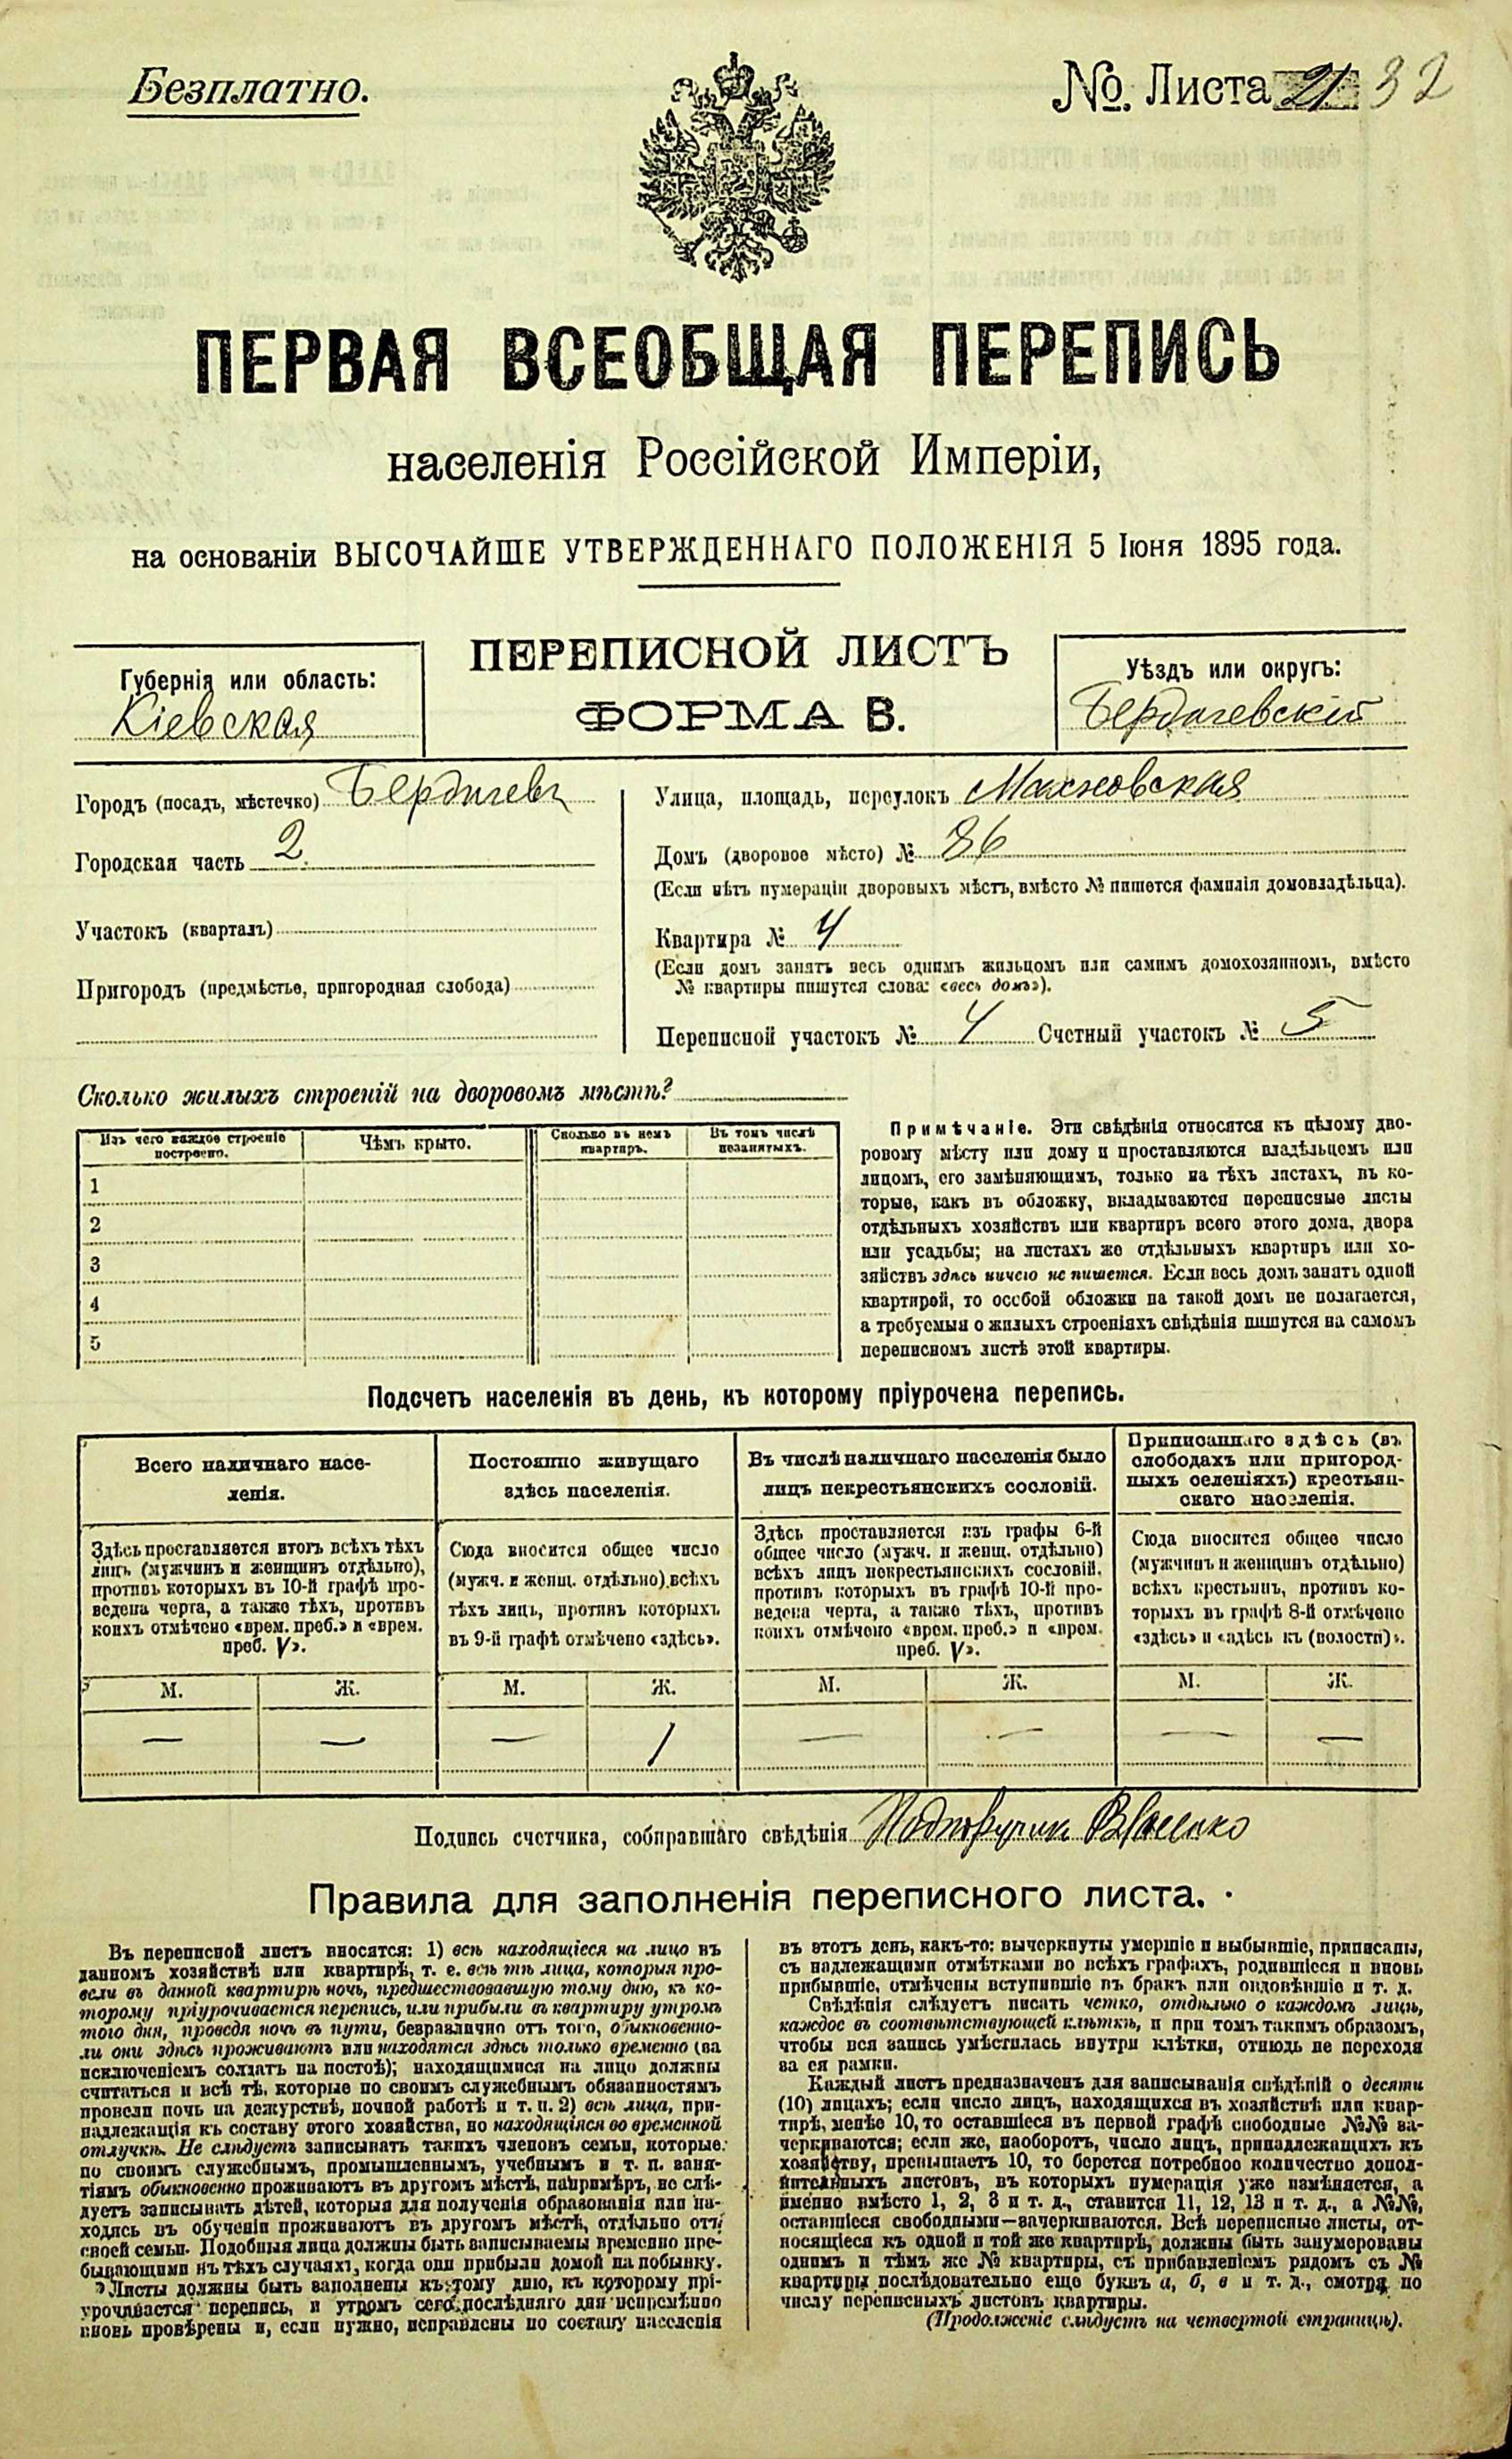 Безплатно.
№. Листа 21 32
ПЕРВАЯ ВСЕОБЩАЯ ПЕРЕПИСЬ
населенія Россійской Имперіи,
на основаніи ВЫСОЧАЙШЕ УТВЕРЖДЕННАГО ПОЛОЖЕНІЯ 5 Іюня 1895 года.
ПЕРЕПИСНОЙ ЛИСТЪ
ФОРМА В.
Губернія или область:
Кіевская
Уѣздъ или округъ:
Бердичевскій
Городъ (посадъ, мѣстечко) Бердичевъ
Городская часть 2
Участокъ (кварталъ)
Пригородъ (предмѣстье, пригородная слобода)
Улица, площадь, переулокъ Махновская
Домъ (дворовое мѣсто) № 86
(Если нѣтъ нумераціи дворовыхъ мѣстъ, вмѣсто № пишется фамилія домовладѣльца).
Квартира № 4
(Если домъ занятъ весь однимъ жильцомъ или самимъ домохозяиномъ, вмѣсто
№ квартиры пишутся слова: «весь домъ»).
Переписной участокъ № 4 Счетный участокъ № 5
Сколько жилыхъ строеній на дворовомъ мѣстѣ?
Изъ чего каждое строеніе
построено.
Чѣмъ крыто.
Сколько въ немъ
квартиръ.
Въ томъ числѣ
незанятыхъ.
1
2
3
4
5
Примѣчаніе. Эти свѣдѣнія относятся къ цѣлому дво-
ровому мѣсту или дому и проставляются владѣльцемъ или
лицомъ, его замѣняющимъ, только на тѣхъ листахъ, въ ко-
торые, какъ въ обложку, вкладываются переписные листы
отдѣльныхъ хозяйствъ или квартиръ всего этого дома, двора
или усадьбы; на листахъ же отдѣльныхъ квартиръ или хо-
зяйствъ здѣсь ничего не пишется. Если весь домъ занятъ одной
квартирой, то особой обложки на такой домъ не полагается,
а требуемыя о жилыхъ строеніяхъ свѣдѣнія пишутся на самомъ
переписномъ листѣ этой квартиры.
Подсчетъ населенія въ день, къ которому пріурочена перепись.
Всего наличнаго насе-
ленія.
Здѣсь проставляется итогъ всѣхъ тѣхъ
лицъ (мужчинъ и женщинъ отдѣльно),
противъ которыхъ въ 10-й графѣ про-
ведена черта, а также тѣхъ, противъ
коихъ отмѣчено «врем. преб.» и «врем.
преб. V».
М. Ж.
— —
Постоянно живущаго
здѣсь населенія.
Сюда вносится общее число
(мужч. и женщ. отдѣльно) всѣхъ
тѣхъ лицъ, противъ которыхъ
въ 9-й графѣ отмѣчено «здѣсь».
М. Ж.
— 1
Въ числѣ наличнаго населенія было
лицъ некрестьянскихъ сословій.
Здѣсь проставляется изъ графы 6-й
общее число (мужч. и женщ. отдѣльно)
всѣхъ лицъ некрестьянскихъ сословій,
противъ которыхъ въ графѣ 10-й про-
ведена черта, а также тѣхъ, противъ
коихъ отмѣчено «врем. преб.» и «врем.
преб. V».
М. Ж.
— —
Приписаннаго здѣсь (въ
слободахъ или пригород-
ныхъ селеніяхъ) крестьян-
скаго населенія.
Сюда вносится общее число
(мужчинъ и женщинъ отдѣльно)
всѣхъ крестьянъ, противъ ко-
торыхъ въ графѣ 8-й отмѣчено
«здѣсь» и «здѣсь къ (волости)».
М. Ж.
— —
Подпись счетчика, собиравшаго свѣдѣнія Подпоручикъ
Правила для заполненія переписного листа.
Въ переписной листъ вносятся: 1) всѣ находящіеся на лицо въ
данномъ хозяйствѣ или квартирѣ, т. е. всѣ тѣ лица, которыя про-
вели въ данной квартирѣ ночь, предшествовавшую тому дню, къ ко-
торому пріурочивается перепись, или прибыли въ квартиру утромъ
того дня, проведя ночь въ пути, безразлично отъ того, обыкновенно-
ли они здѣсь проживаютъ или находятся здѣсь только временно (за
исключеніемъ солдатъ на постоѣ); находящимися на лицо должны
считаться и всѣ тѣ, которые по своимъ служебнымъ обязанностямъ
провели ночь на дежурствѣ, ночной работѣ и т. п. 2) всѣ лица, при-
надлежащія къ составу этого хозяйства, но находящіяся во временной
отлучкѣ. Не слѣдуетъ записывать такихъ членовъ семьи, которые
по своимъ служебнымъ, промышленнымъ, учебнымъ и т. п. заня-
тіямъ обыкновенно проживаютъ въ другомъ мѣстѣ, напримѣръ, не слѣ-
дуетъ записывать дѣтей, которыя для полученія образованія или на-
ходясь въ обученіи проживаютъ въ другомъ мѣстѣ, отдѣльно отъ
своей семьи. Подобныя лица должны быть записываемы временно пре-
бывающими въ тѣхъ случаяхъ, когда они прибыли домой на побывку.
Листы должны быть заполнены къ тому дню, къ которому прі-
урочивается перепись, и утромъ сего послѣдняго дня непремѣнно
вновь провѣрены и, если нужно, исправлены по составу населенія
въ этотъ день, какъ-то: вычеркнуты умершіе и выбывшіе, приписаны,
съ надлежащими отмѣтками во всѣхъ графахъ, родившіеся и вновь
прибывшіе, отмѣчены вступившіе въ бракъ или овдовѣвшіе и т. д.
Свѣдѣнія слѣдуетъ писать четко, отдѣльно о каждомъ лицѣ,
каждое въ соотвѣтствующей клѣткѣ, и при томъ такимъ образомъ,
чтобы вся запись умѣстилась внутри клѣтки, отнюдь не переходя
за ея рамки.
Каждый листъ предназначенъ для записыванія свѣдѣній о десяти
(10) лицахъ; если число лицъ, находящихся въ хозяйствѣ или квар-
тирѣ, менѣе 10, то оставшіеся въ первой графѣ свободные №№ за-
черкиваются; если же, наоборотъ, число лицъ, принадлежащихъ къ
хозяйству, превышаетъ 10, то берется потребное количество допол-
нительныхъ листовъ, въ которыхъ нумерація уже измѣняется, а
именно вмѣсто 1, 2, 3 и т. д., ставится 11, 12, 13 и т. д., а №№,
оставшіеся свободными—зачеркиваются. Всѣ переписные листы, от-
носящіеся къ одной и той же квартирѣ, должны быть занумерованы
однимъ и тѣмъ же № квартиры, съ прибавленіемъ рядомъ съ №
квартиры последовательно еще буквъ а, б, в и т. д., смотря по
числу переписныхъ листовъ квартиры.
(Продолженіе слѣдуетъ на четвертой страницѣ).